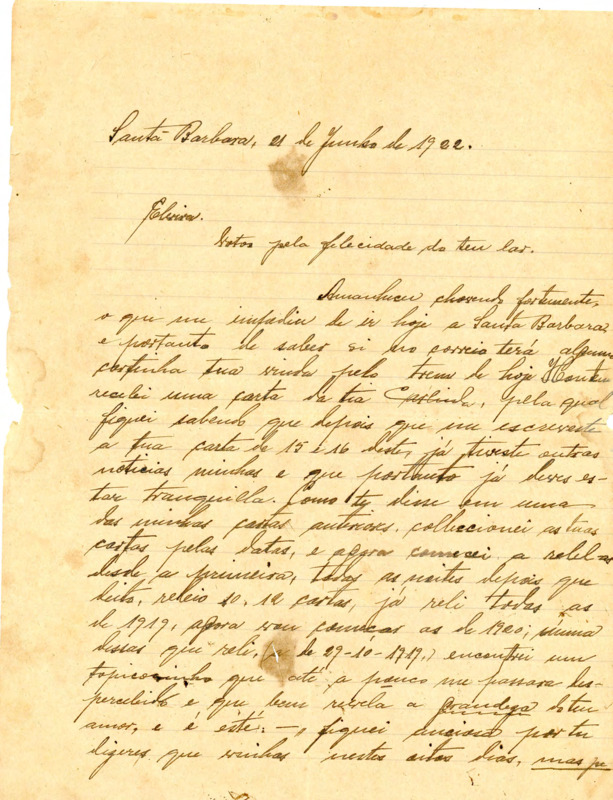 Santa Barbara, 21 de Junho de 1922.
Elvira.
Votos pela felecidade do teu lar.
Amanheceu chovendo fortemente,
o que me impediu de ir hoje a Santa Barbara
e portanto de saber si no correio terá alguma
cartinha tua vinda pelo trem de hoje. Hontem
recebi uma carta da tia Carlinda, pela qual
fiquei sabendo que depois que me escreveste
a tua carta de 15 e 16 deste, já tiveste outras
noticias minhas e que portanto já deves es-
tar tranquilla. Como te disse em uma
das minhas cartas anteriores, colleccionei as tuas
cartas pelas datas, e agora comecei a relel-as
desde a primeira, todas as noites depois que
deito, releio 10, 12 cartas, já reli todas as
de 1919, agora vou começar as de 1920; numa
dessas que reli, de 29-10-1919, encontrei um
topicosinho que até a pouco me passara des-
percebido e que bem revela a grandeza do teu
amor, e é este: — fiquei anciosa por tu
dizeres que vinhas nestes oitos dias, mas p